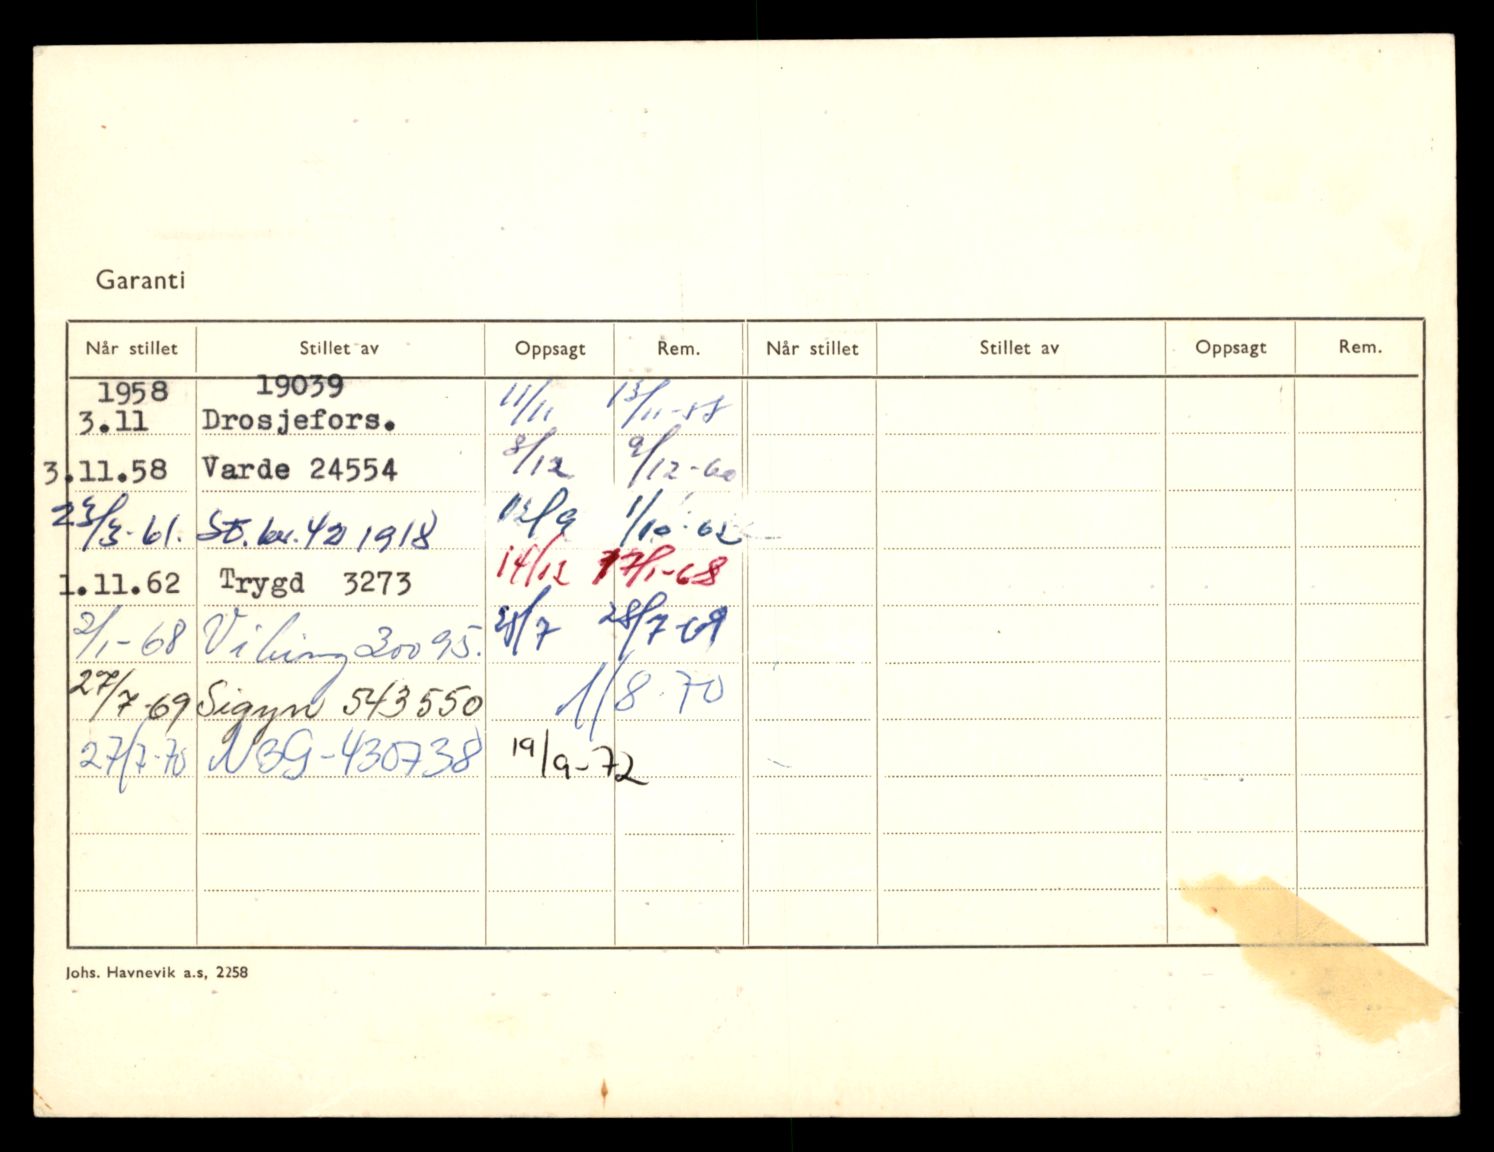 Garanti
Når stillet Stillet av Oppsagt Rem. Når stillet Stillet av Oppsagt Rem.
1958 19039 11/11 13/11-58
3.11 Drosjefors.
3.11.58 Varde 24554 8/12 9/12-60
23/3-61. St. 42 1918 12/9 1/10-62
1.11.62 Trygd 3273 14/12 17/1-68
2/1-68 Viking 20095. 28/7 28/7-69
27/7-69 Sigyn 543550 1/8-70
27/7-70 NBG-430738 19/9-72
Johs. Havnevik a.s, 2258